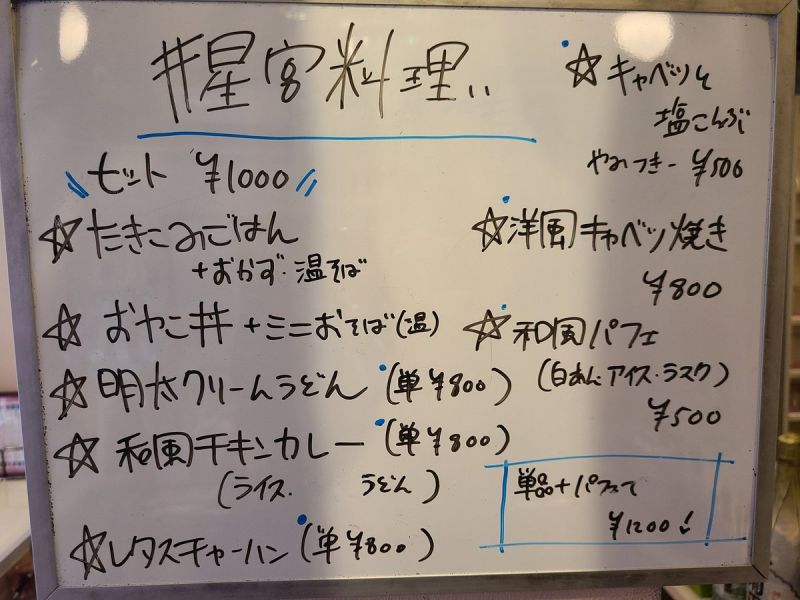 #星宮料理..
セット ¥1000
☆たきこみごはん
+おかず・温そば
☆おやこ丼+ミニおそば(温)
☆明太クリームうどん(単¥800)
☆和風チキンカレー(単¥800)
(ライス. うどん)
☆レタスチャーハン(単¥800)
☆キャベツと
塩こんぶ
やみつき-¥500
☆洋風キャベツ焼き
¥800
☆和風パフェ
(白あん・アイス・ラスク)
¥500
単品+パフェで
¥1200!